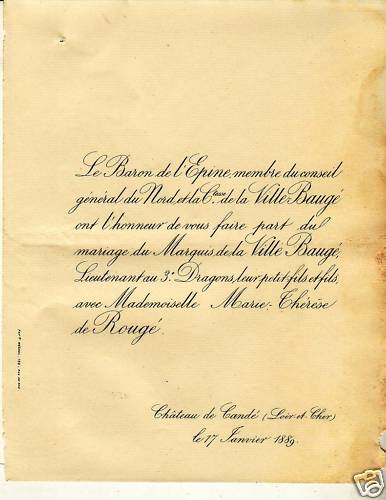 Le Baron de l'Epine, membre du conseil
général du Nord, et la Ctesse de la Ville-Baugé
ont l'honneur de vous faire part du
mariage du Marquis de la Ville Baugé,
Lieutenant au 3e Dragons, leur petit fils et fils,
avec Mademoiselle Marie-Thérèse
de Rougé.
Château de Candé (Loir-et-Cher)
le 17 Janvier 1889.
ebY